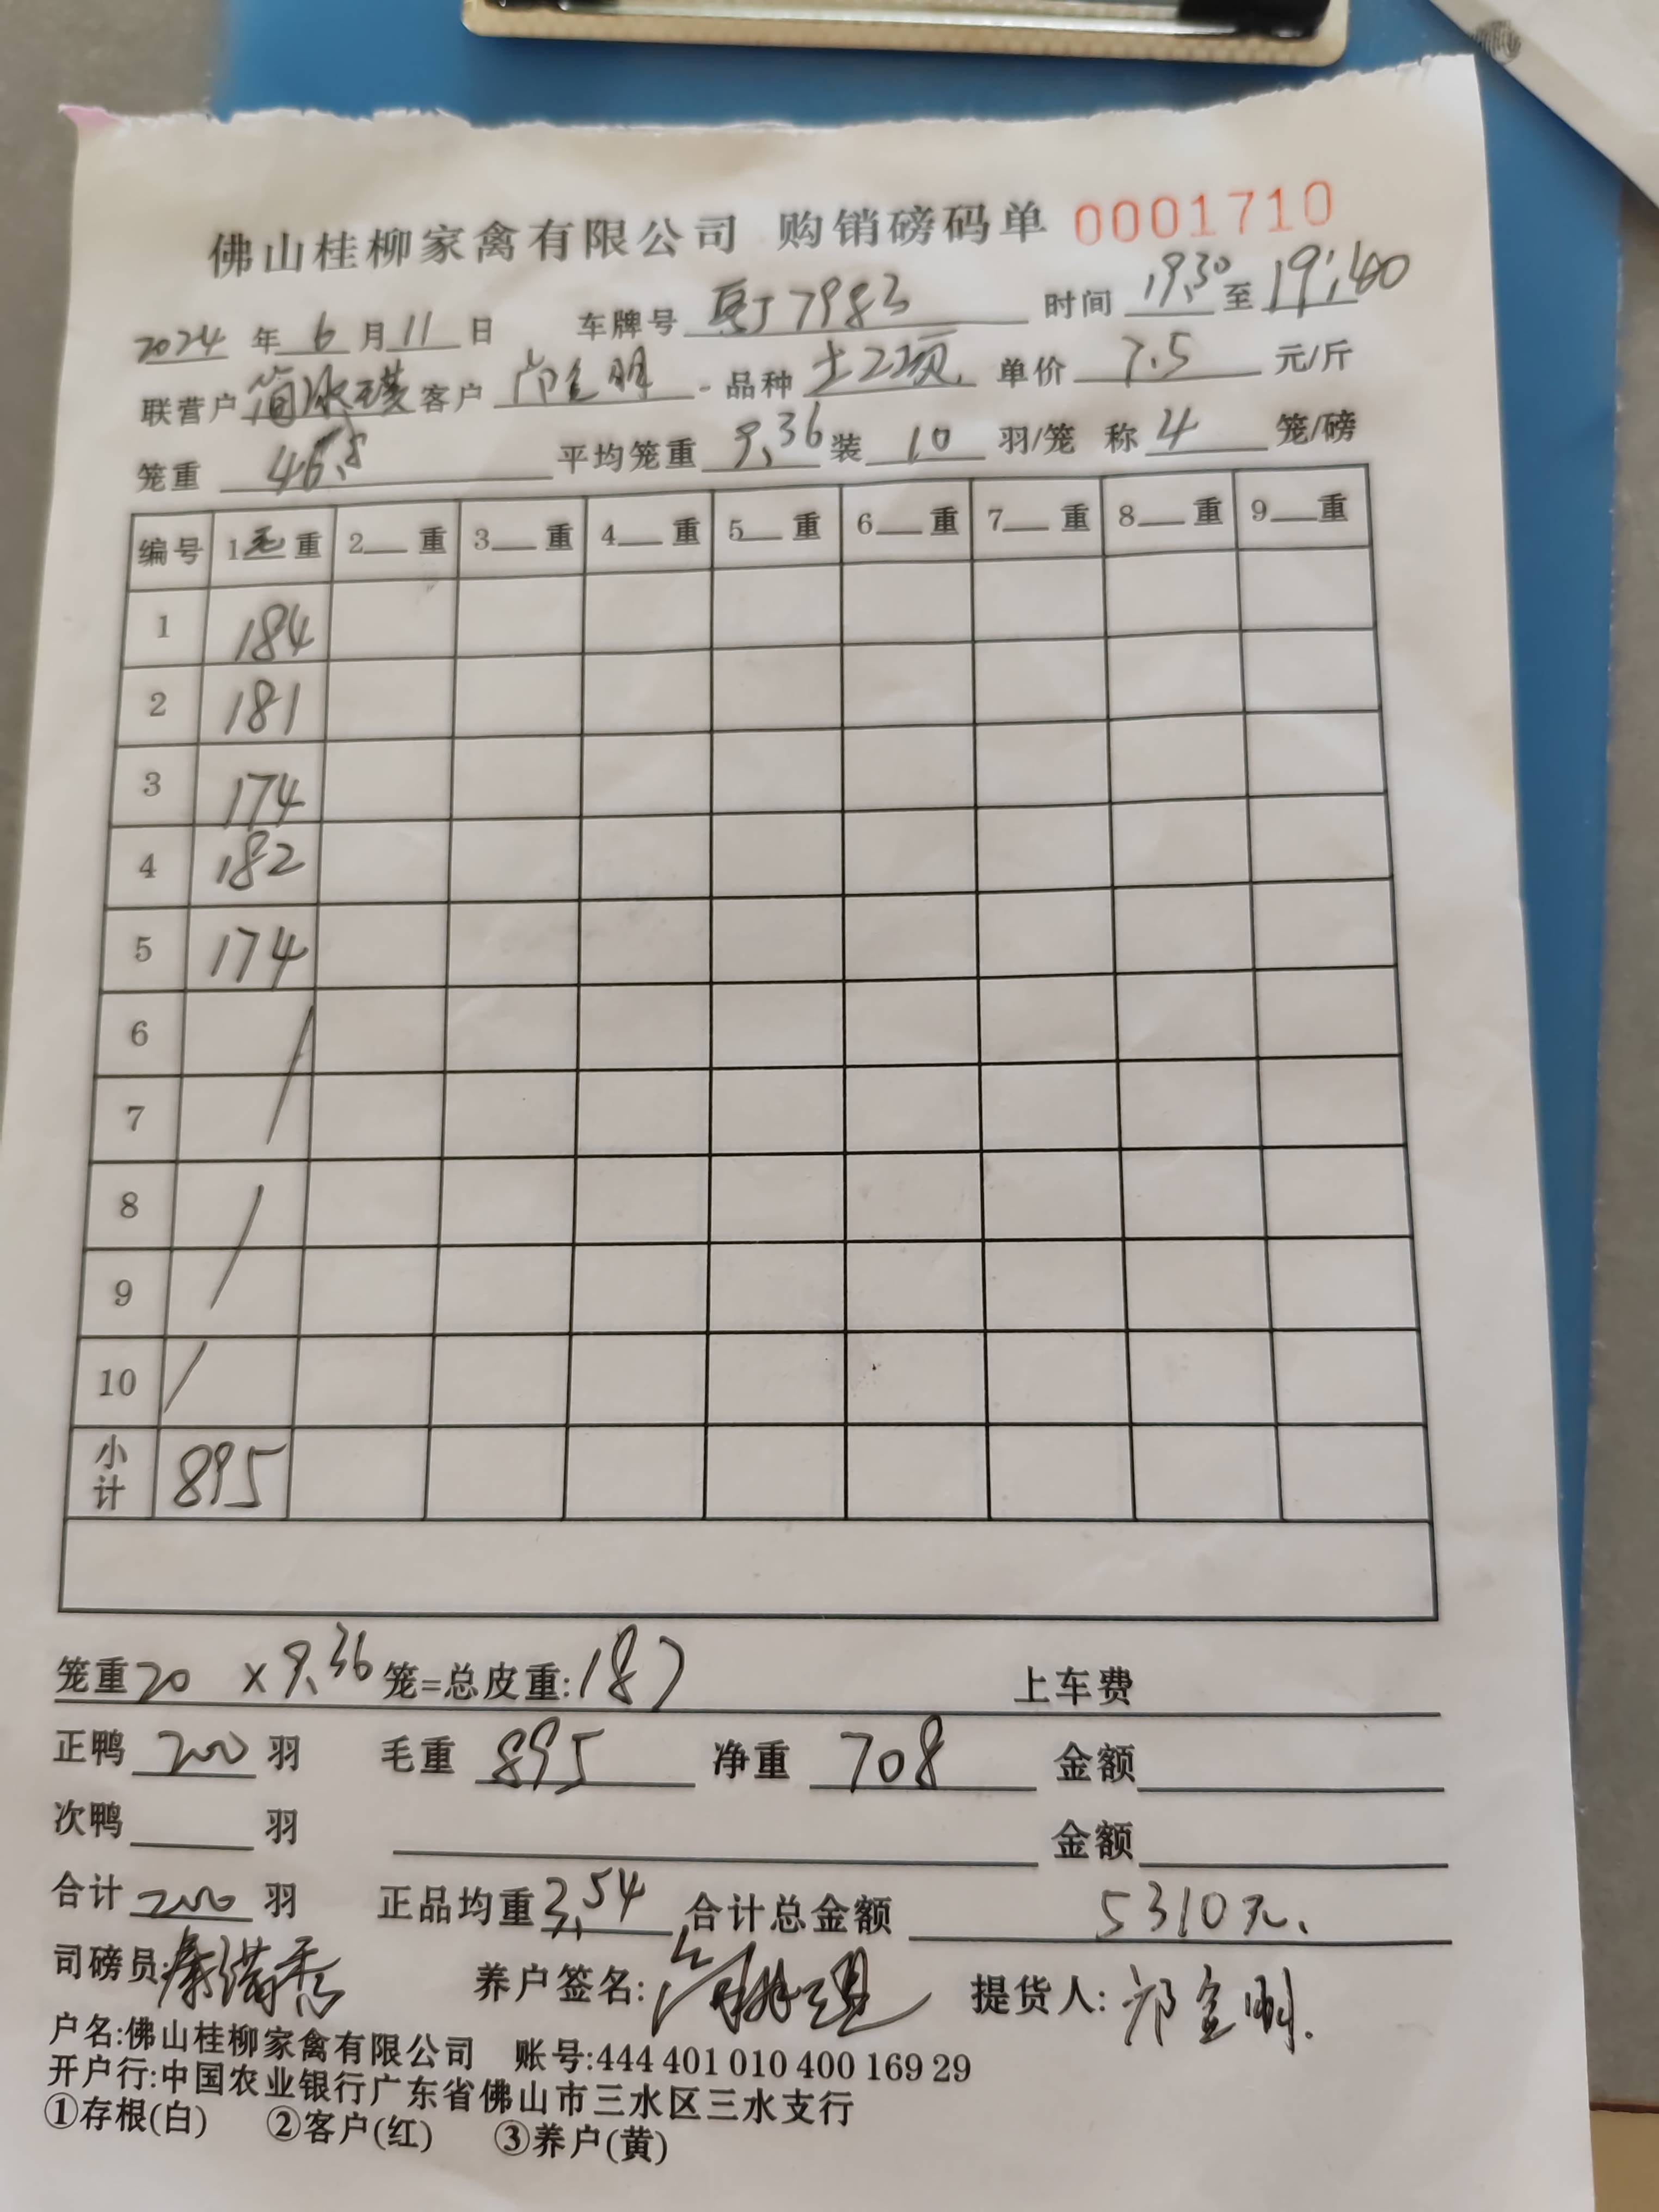 佛山桂柳家禽有限公司 购销磅码单 0001710
2024 年 6 月 11 日 车牌号 J7983 时间 19.30 至 19:40
联营户 简冰 客户 金明 品种 土2 单价 7.5 元/斤
笼重 46.8 平均笼重 9.36 装 10 羽/笼 称 4 笼/磅
编号 1毛重 2__重 3__重 4__重 5__重 6__重 7__重 8__重 9__重
1 184
2 181
3 174
4 182
5 174
6
7
8
9
10
小计 895
笼重 20 × 9.36 笼=总皮重:187 上车费
正鸭 200 羽 毛重 895 净重 708 金额
次鸭 羽 金额
合计 200 羽 正品均重 3.54 合计总金额 5310元.
司磅员: 养户签名: 提货人: 金明.
户名:佛山桂柳家禽有限公司 账号:444 401 010 400 169 29
开户行:中国农业银行广东省佛山市三水区三水支行
①存根(白) ②客户(红) ③养户(黄)